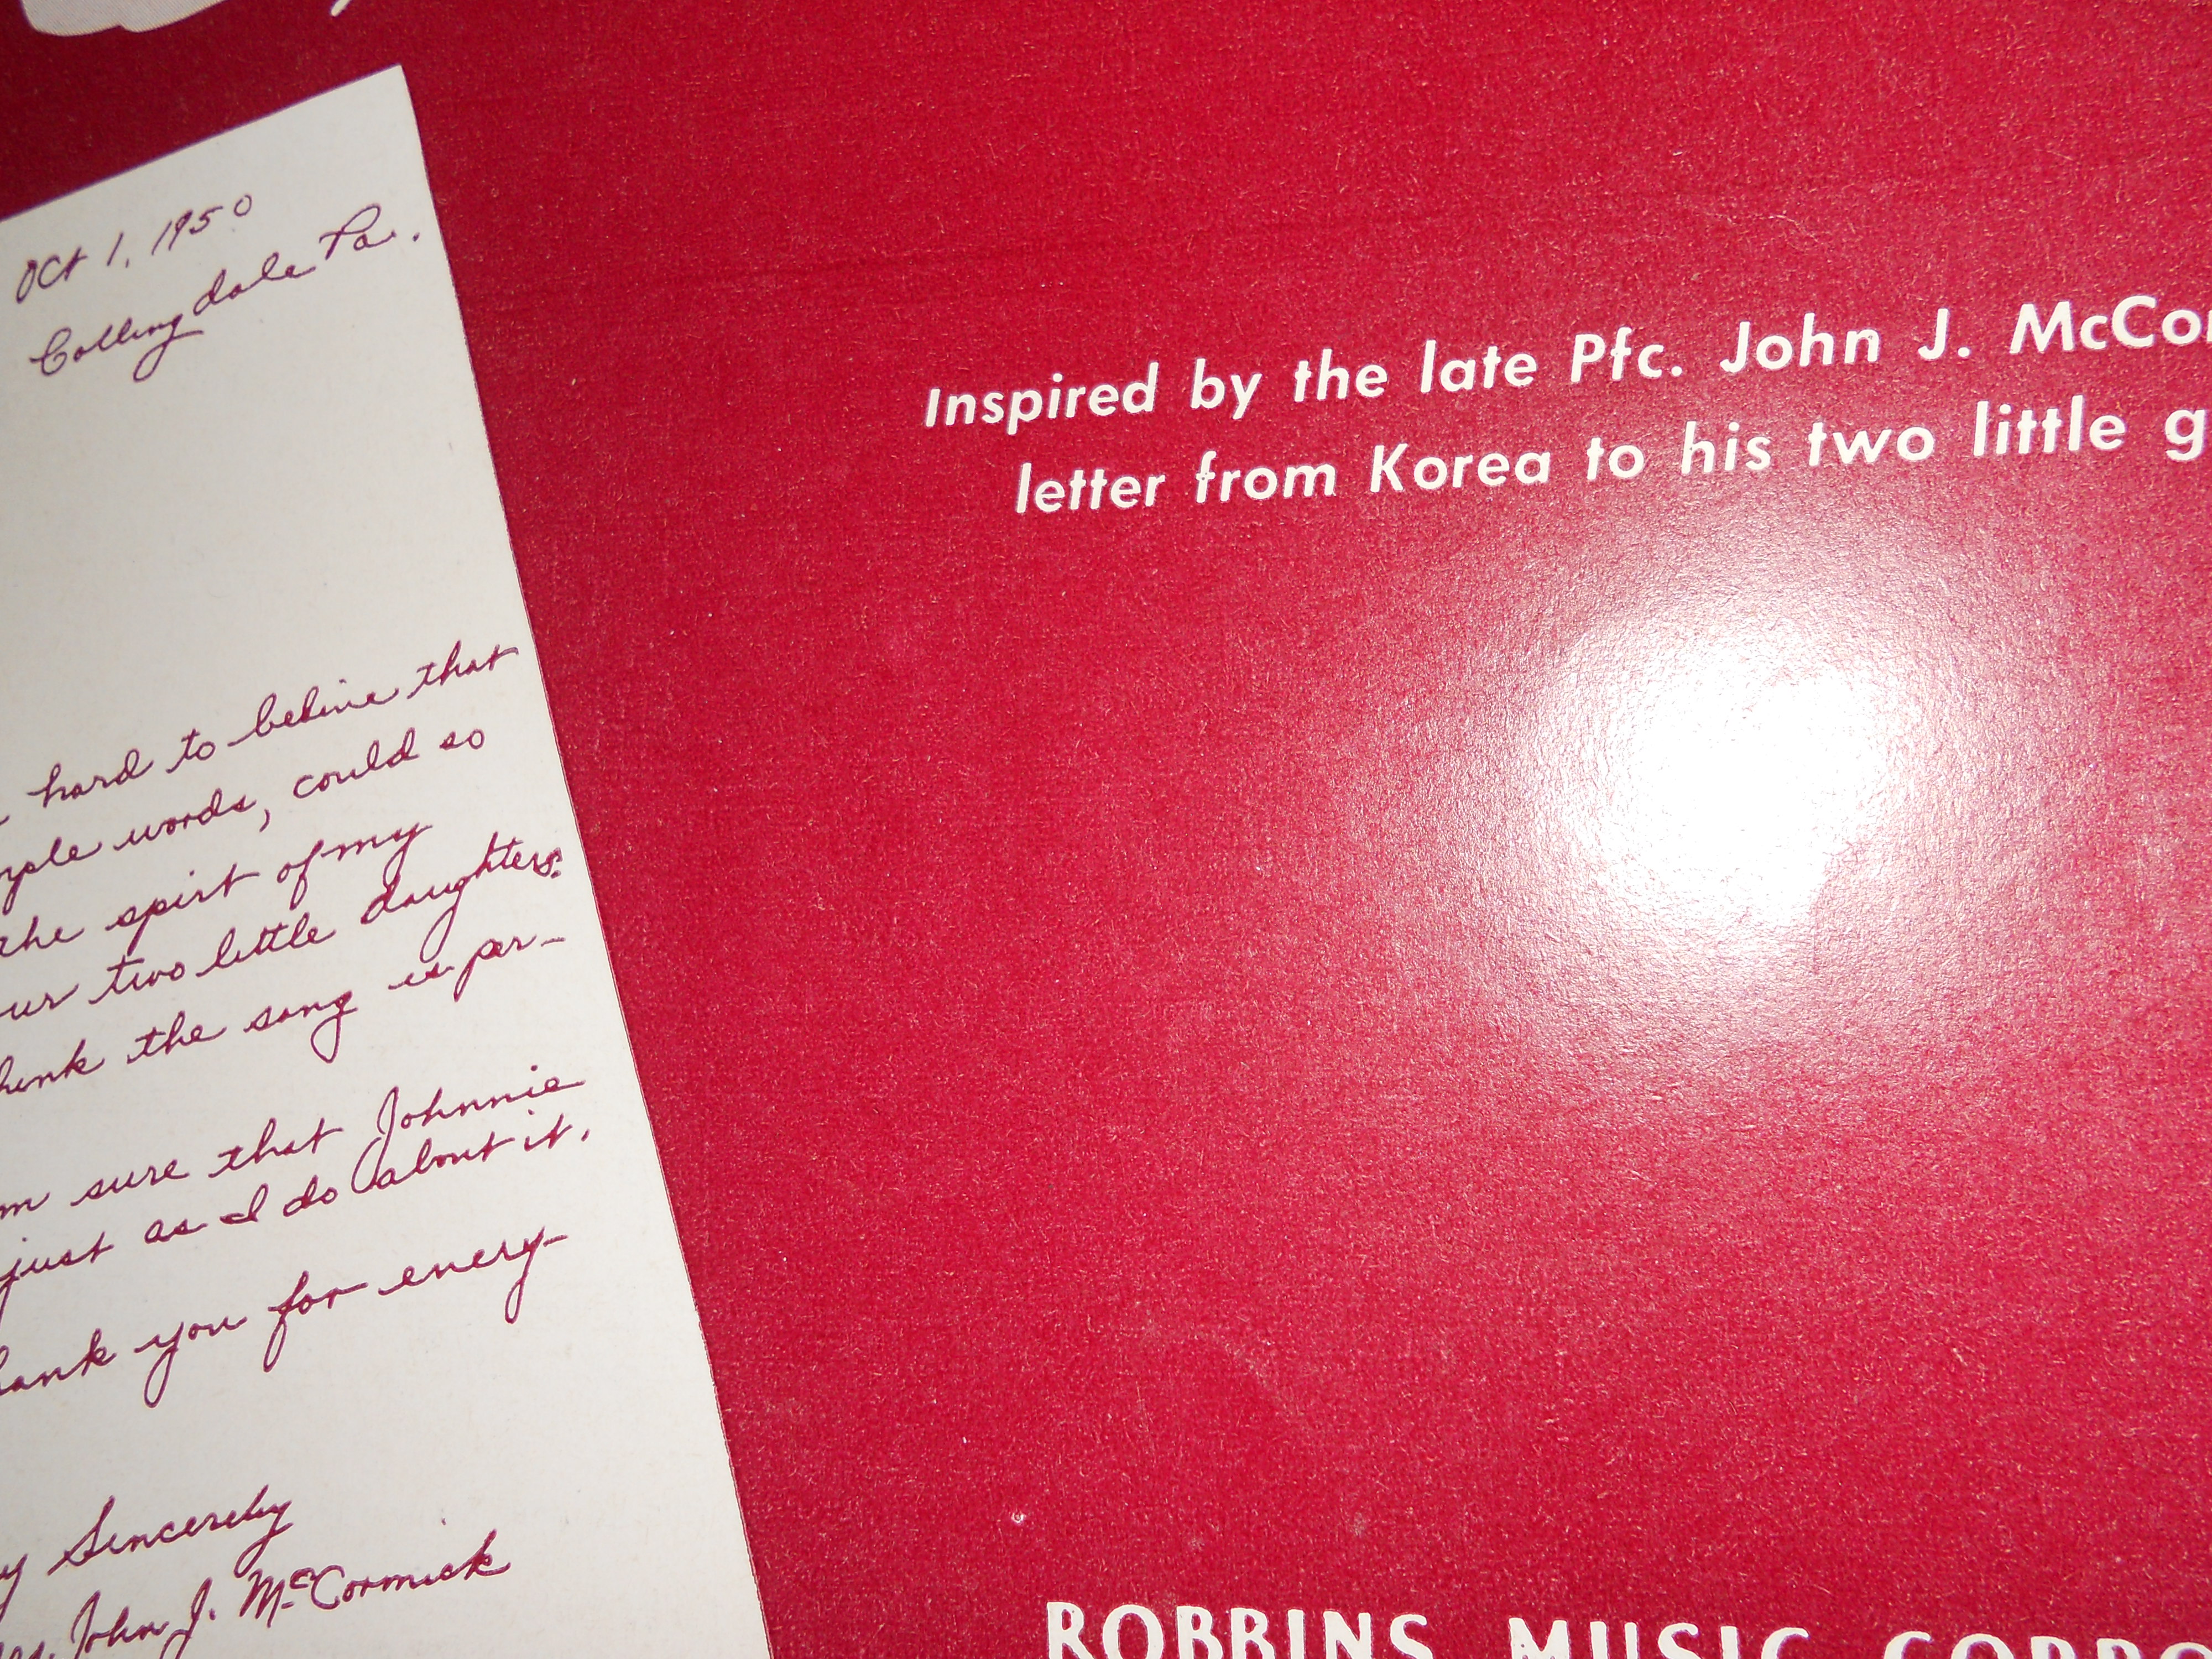 Oct 1, 1950
Collingdale Pa.
hard to belive that
words, could so
the spirt of my
two little daughters.
the song is per-
sure that Johnnie
just as I do about it.
you for every-
Sincerely
John J. McCormick
Inspired by the late Pfc. John J.
letter from Korea to his two little
ROBBINS MUSIC